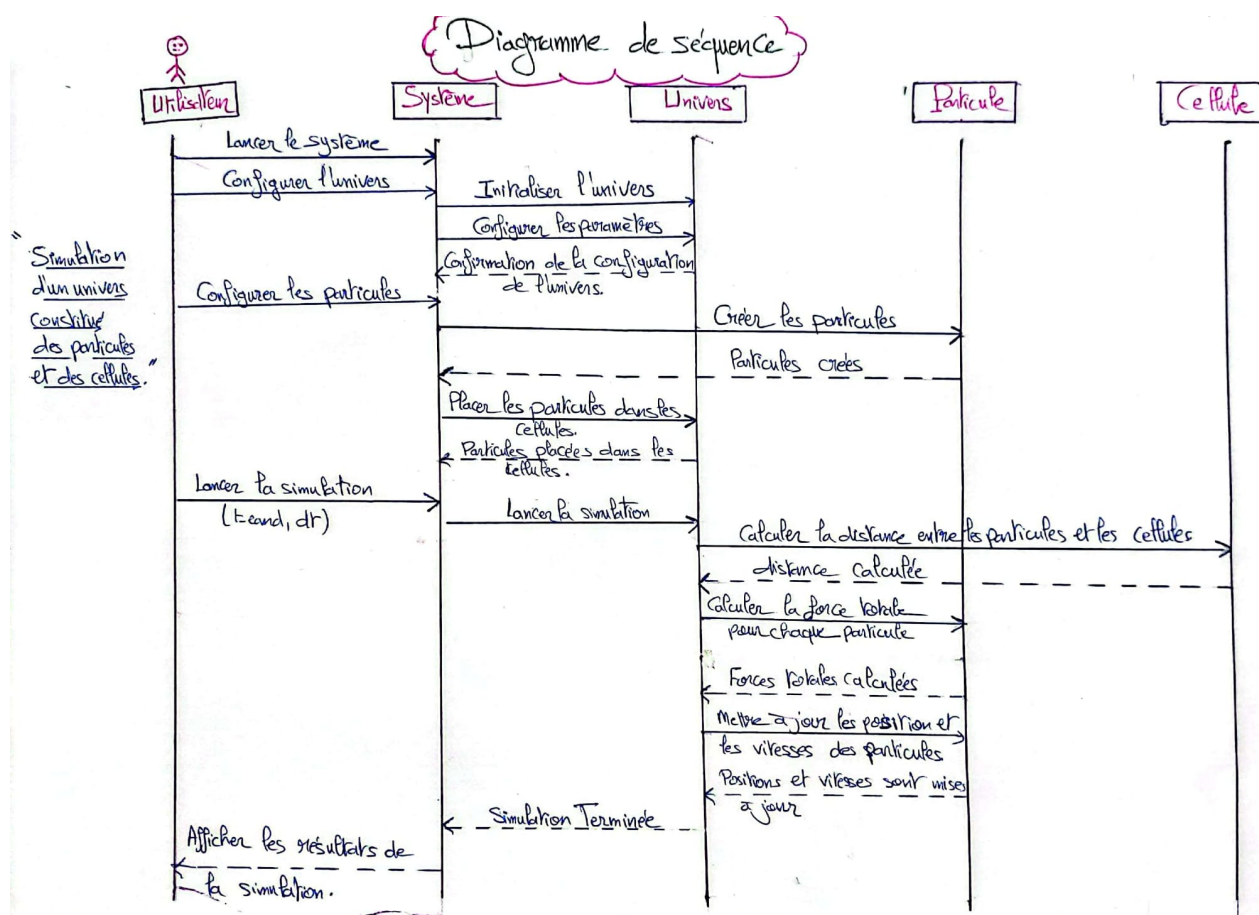 Diagramme de séquence
Utilisateur
Système
Univers
Particule
Cellule
Lancer le système
Configurer l'univers
Initialiser l'univers
Configurer les paramètres
Confirmation de la configuration
de l'univers.
"Simulation
d'un univers
constitué
des particules
et des cellules."
Configurer les particules
Créer les particules
Particules crées
Placer les particules dans les
cellules.
Particules placées dans les
cellules.
Lancer la simulation
Lancer la simulation
Calculer la distance entre les particules et les cellules
distance calculée
Calculer la force totale
pour chaque particule
Forces totales calculées
Mettre à jour les position et
les vitesses des particules
Positions et vitesses sont mises
à jour
Simulation Terminée
Afficher les résultats de
la simulation.